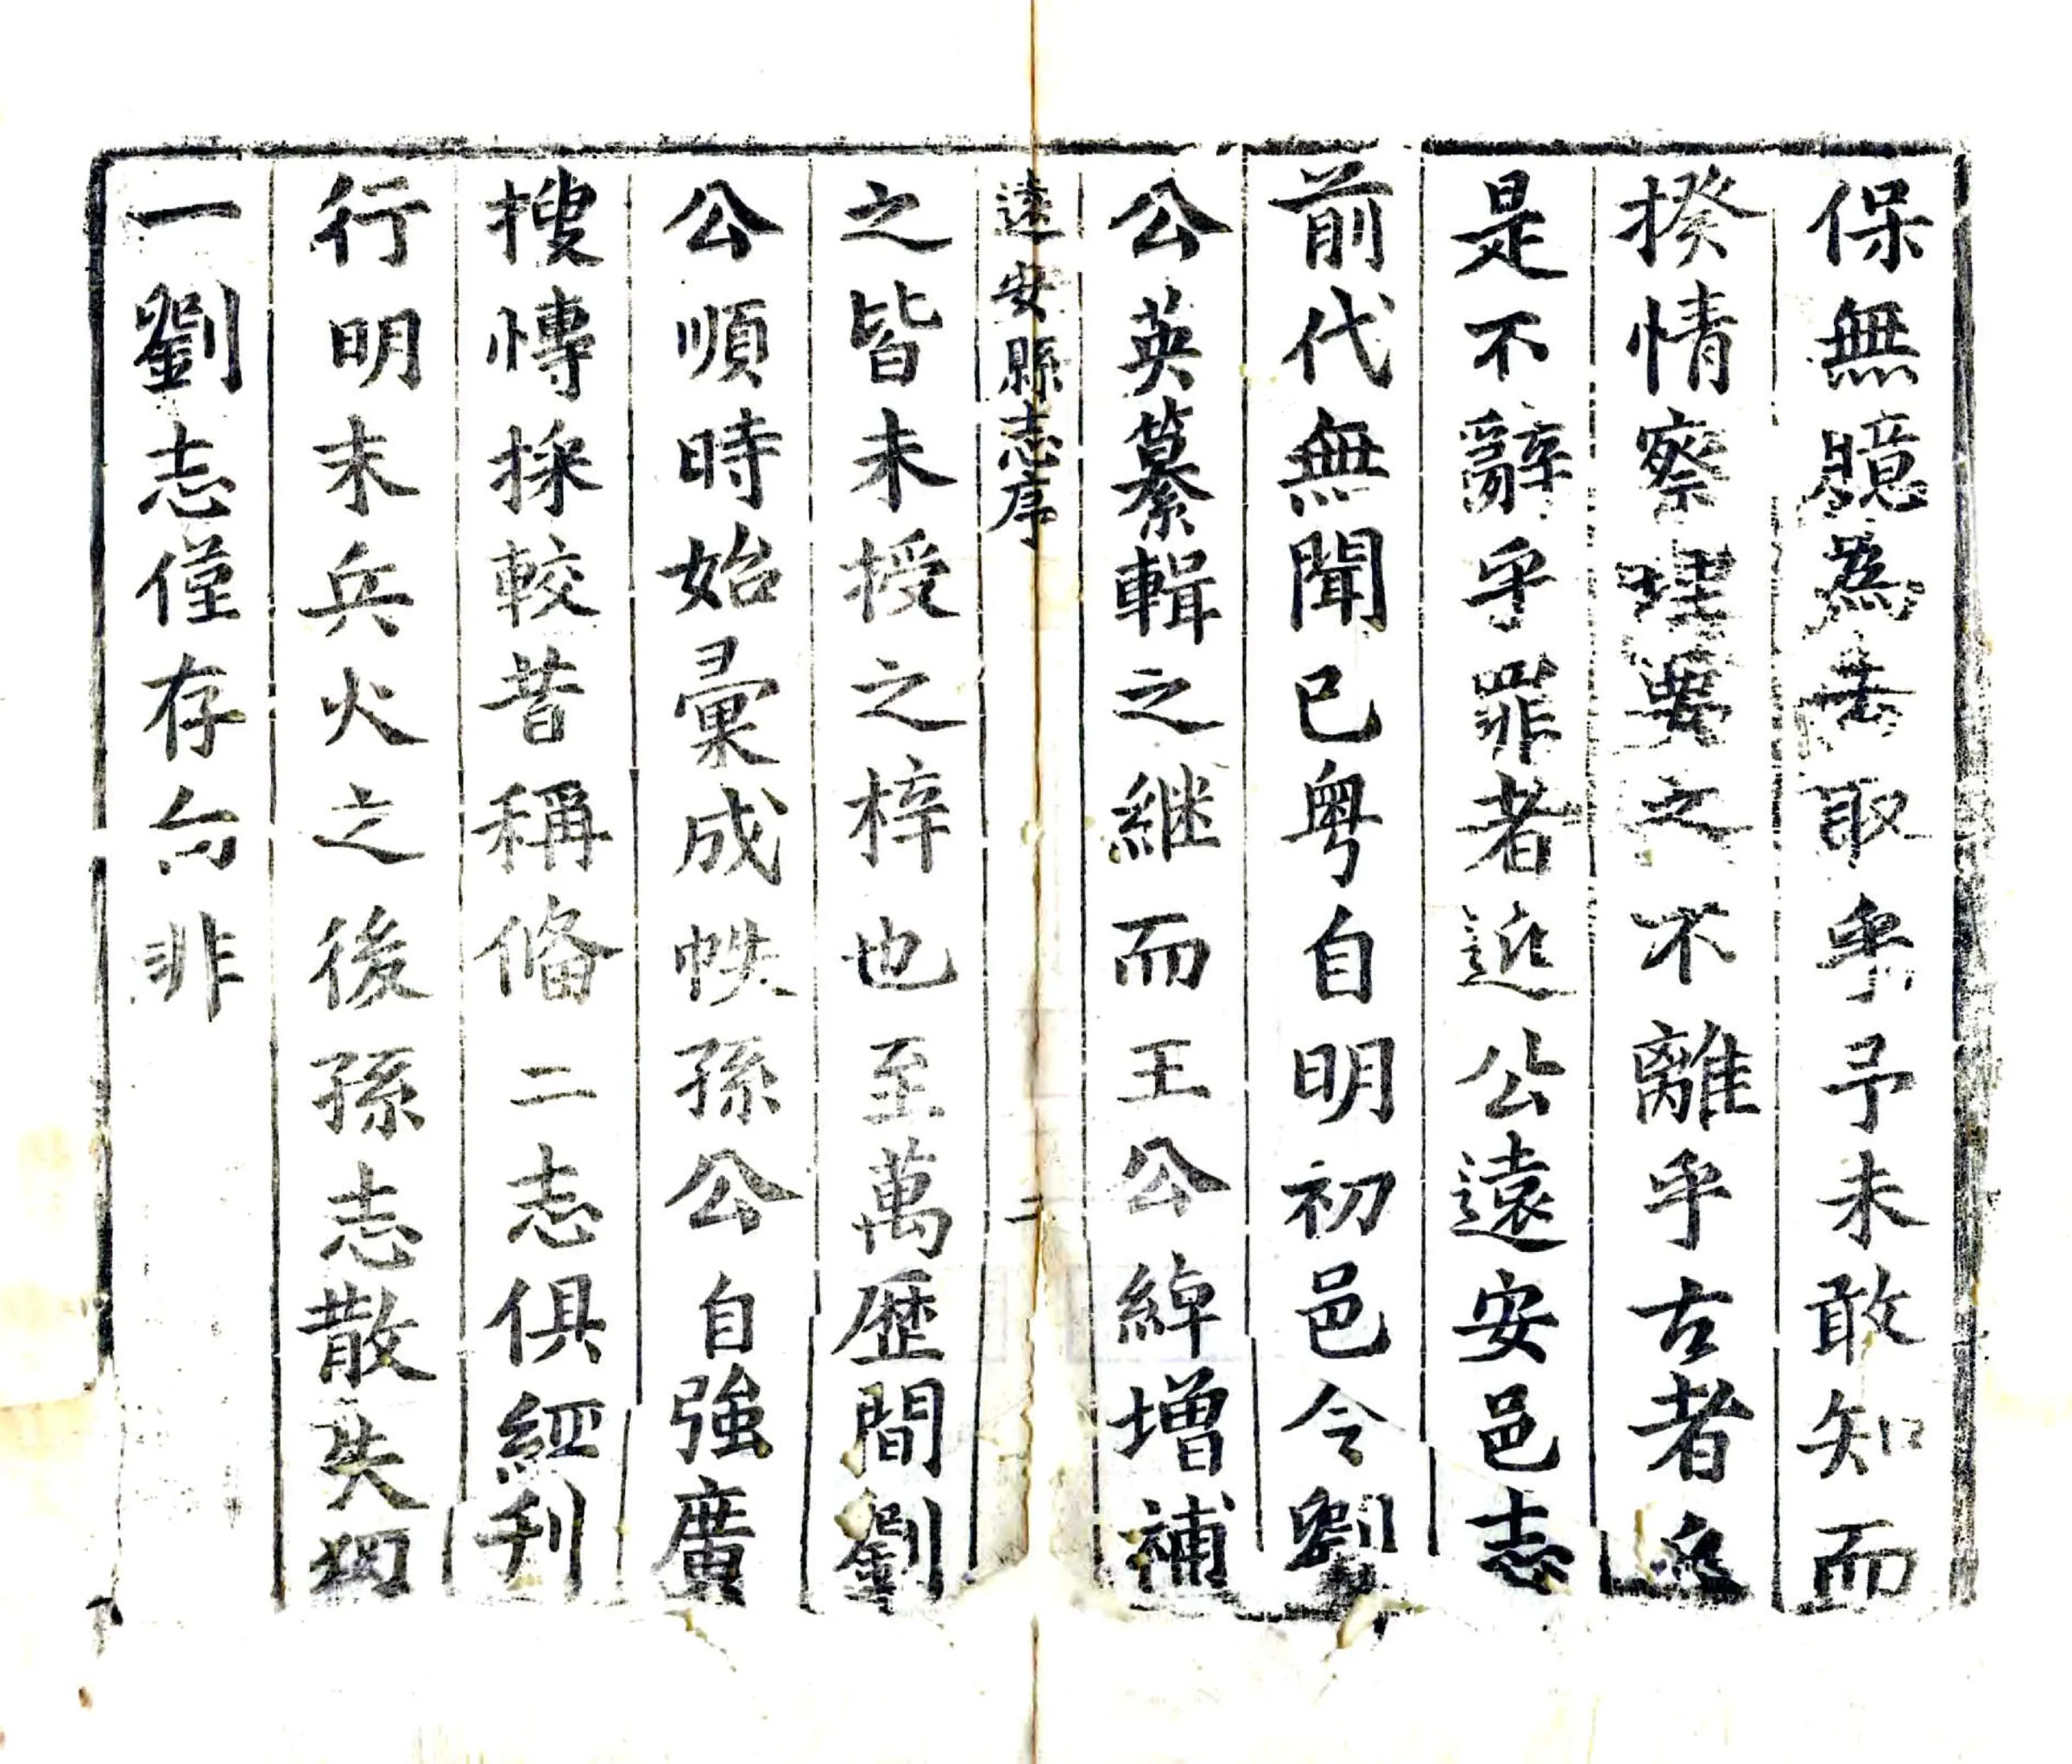 保無臆為去取乎予未敢知而
揆情察理要之不離乎古者近
是不辭乎罪者近公遠安邑志
前代無聞已粤自明初邑令劉
公英纂輯之継而王公綽增補
遠安縣志序
二
之皆未授之梓也至萬歷間劉
公順時始彙成帙孫公自強廣
搜博採較昔稱俻二志俱經刊
行明末兵火之後孫志散失独
一劉志僅存向非